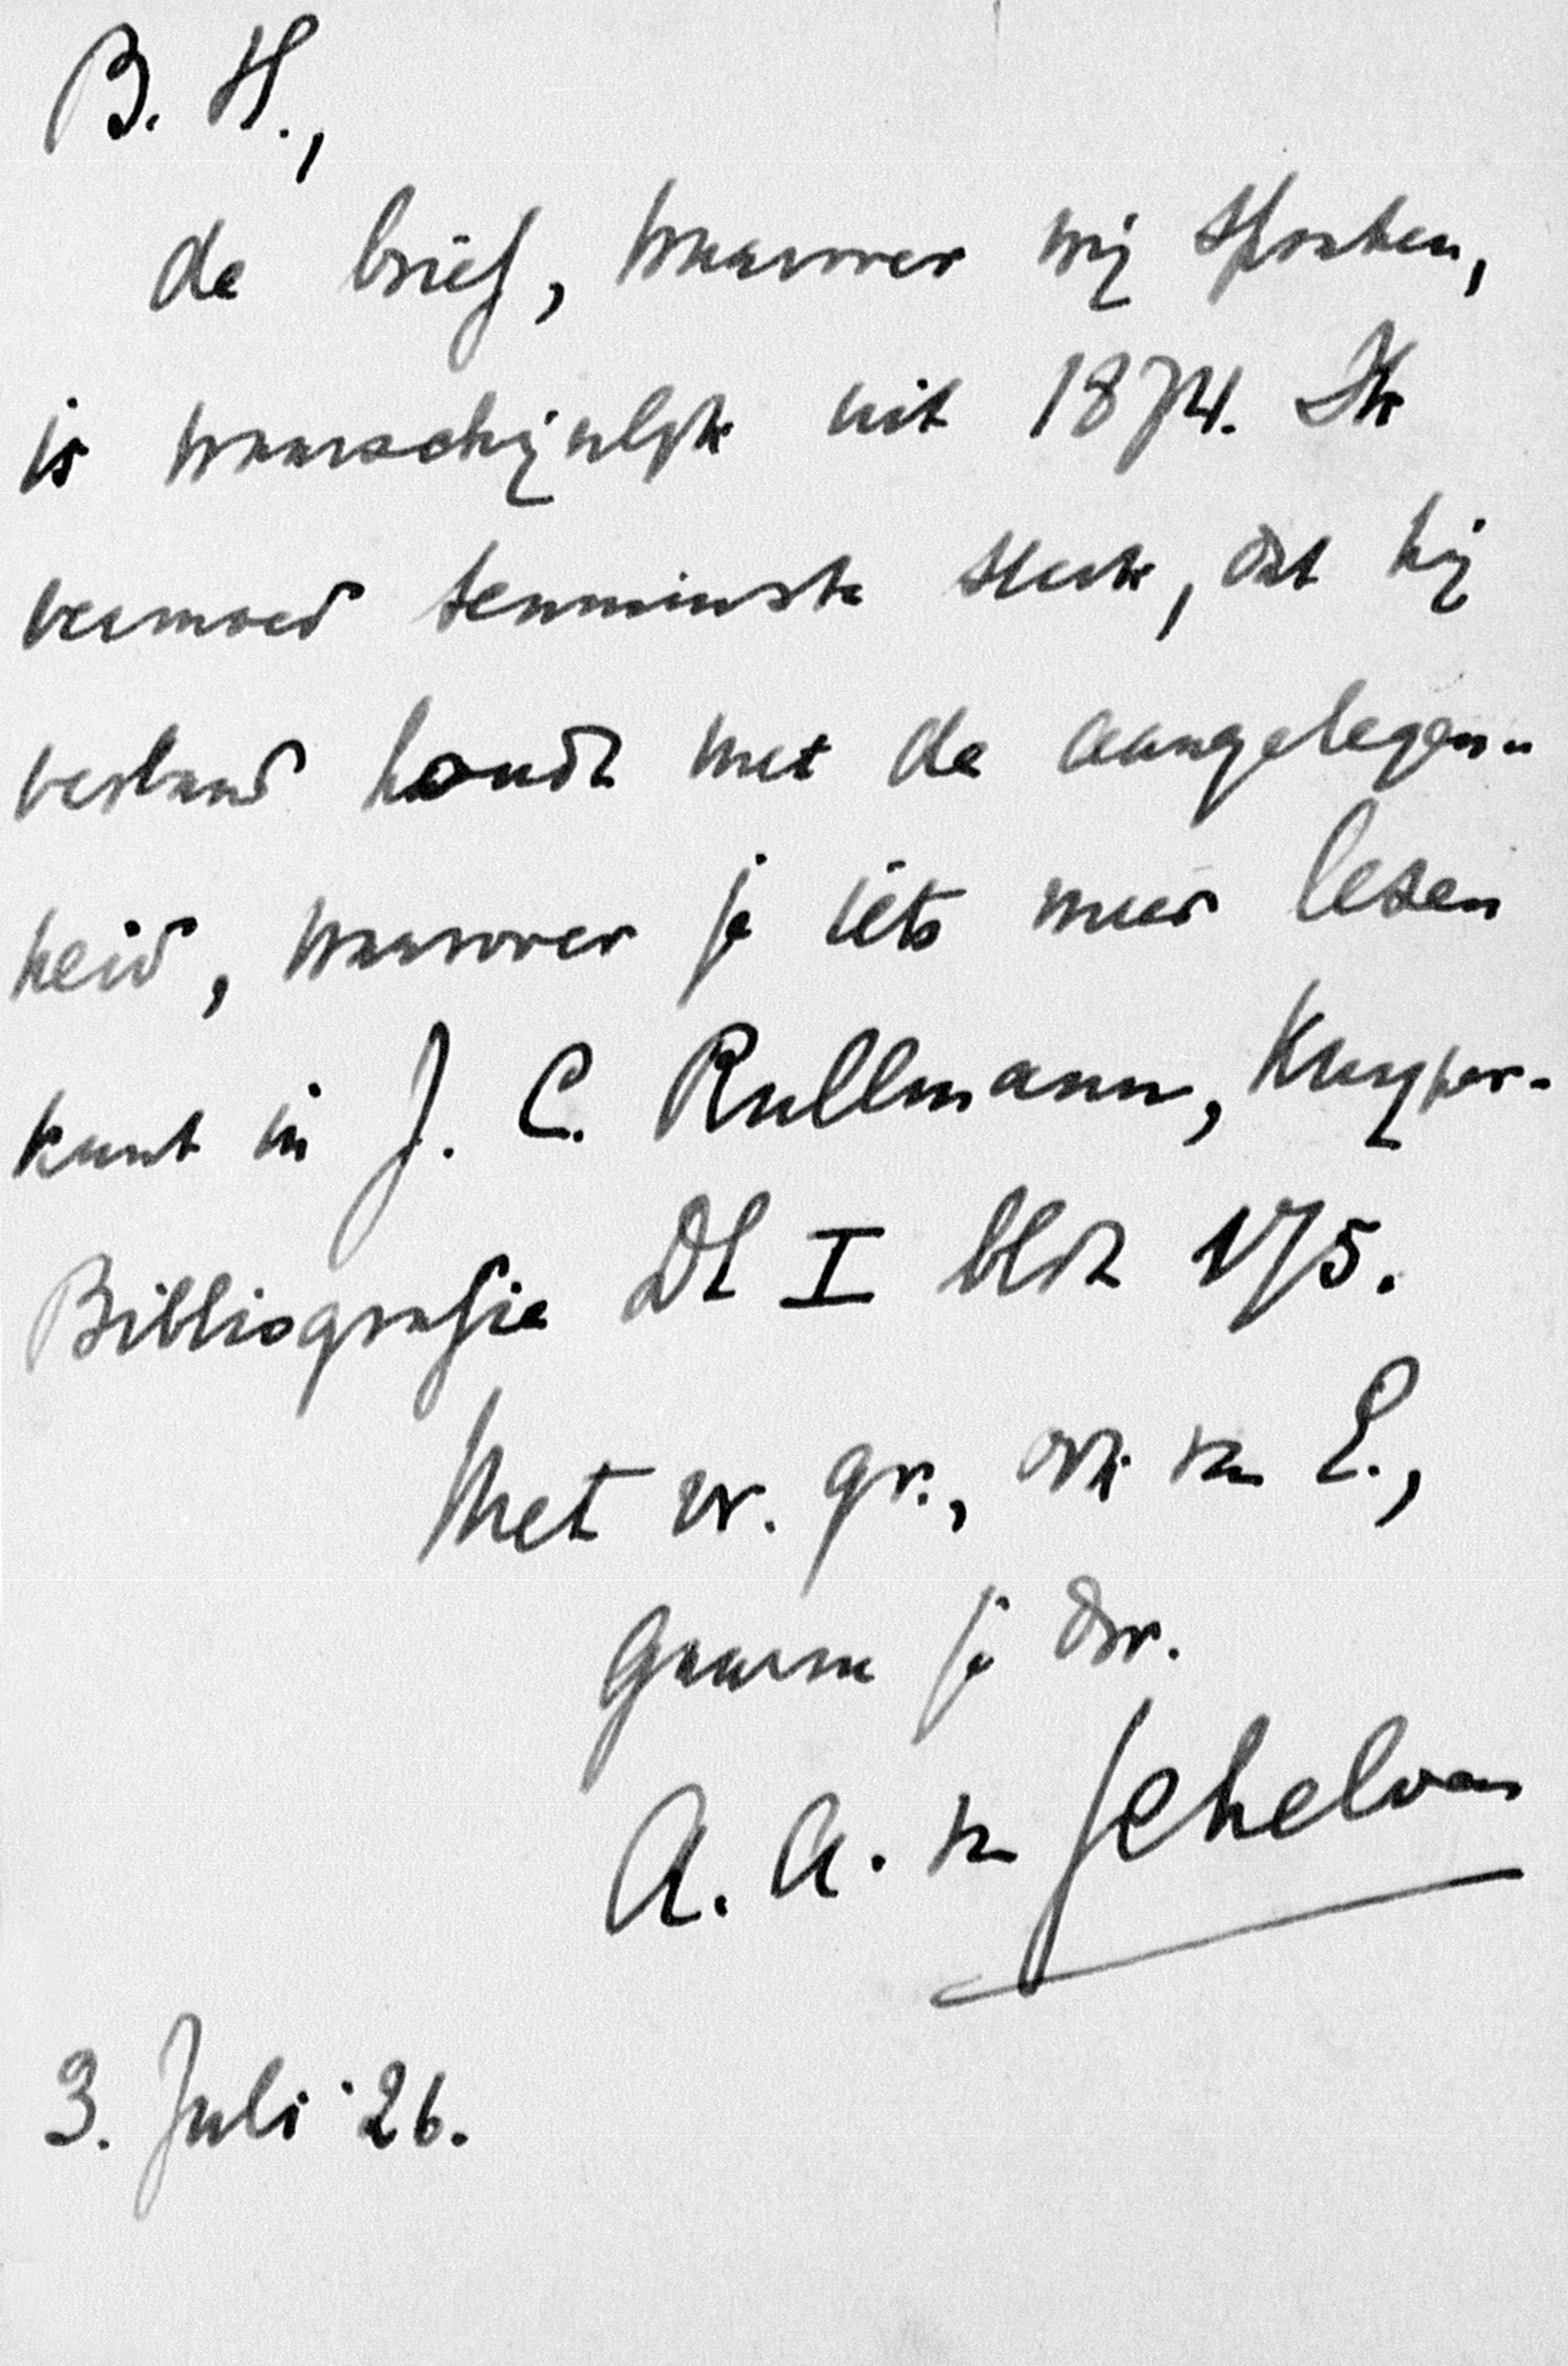 B. H.,
de brief, waarover wij spraken,
is waarschijnlijk uit 1874. Ik
vermoed tenminste sterk, dat hij
verband houdt met de aangelegen-
heid, waarover je iets meer lezen
kunt in J. C. Rullmann, Kuyper-
Bibliografie Dl I bldz 175.
Met vr. gr., ook van E.,
Gaarne je dr.
A. A. v Schelven
3. Juli '26.